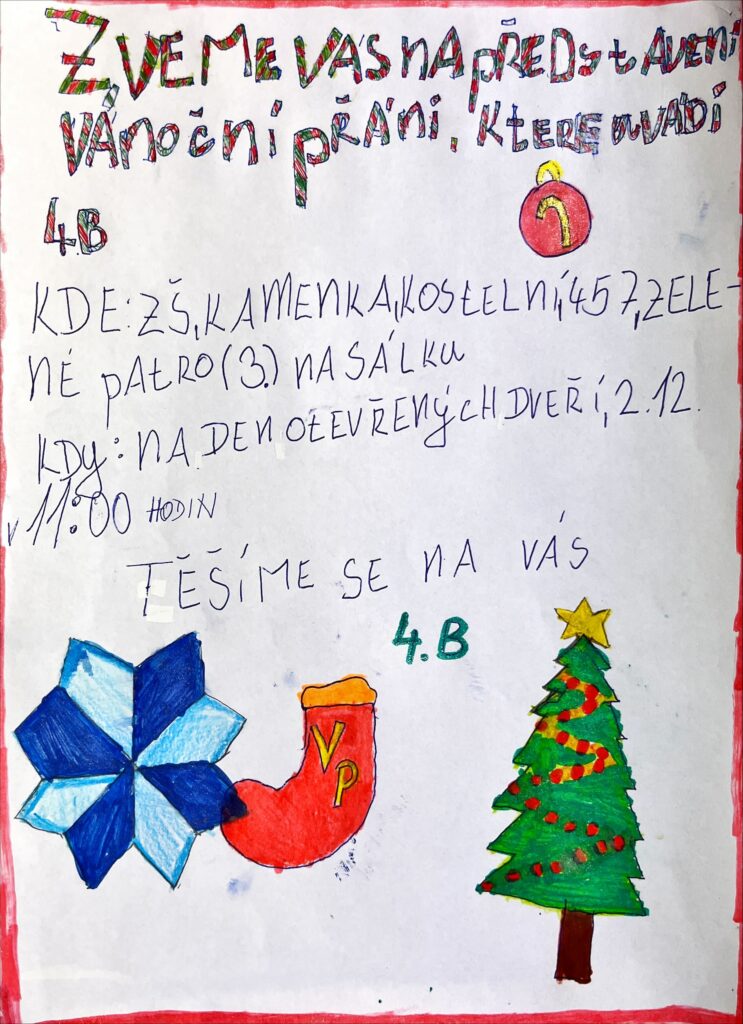 ZVEME VÁS NA PŘEDSTAVENÍ
VÁNOČNÍ PŘÁNÍ, KTERÉ UVÁDÍ
4.B
KDE: ZŠ, KAMENKA, KOSTELNÍ, 457, ZELE-
NÉ PATRO (3.) NA SÁLKU
KDY: NA DEN OTEVŘENÝCH DVEŘÍ, 2.12.
v 11:00 HODIN
TĚŠÍME SE NA VÁS
4.B
VP